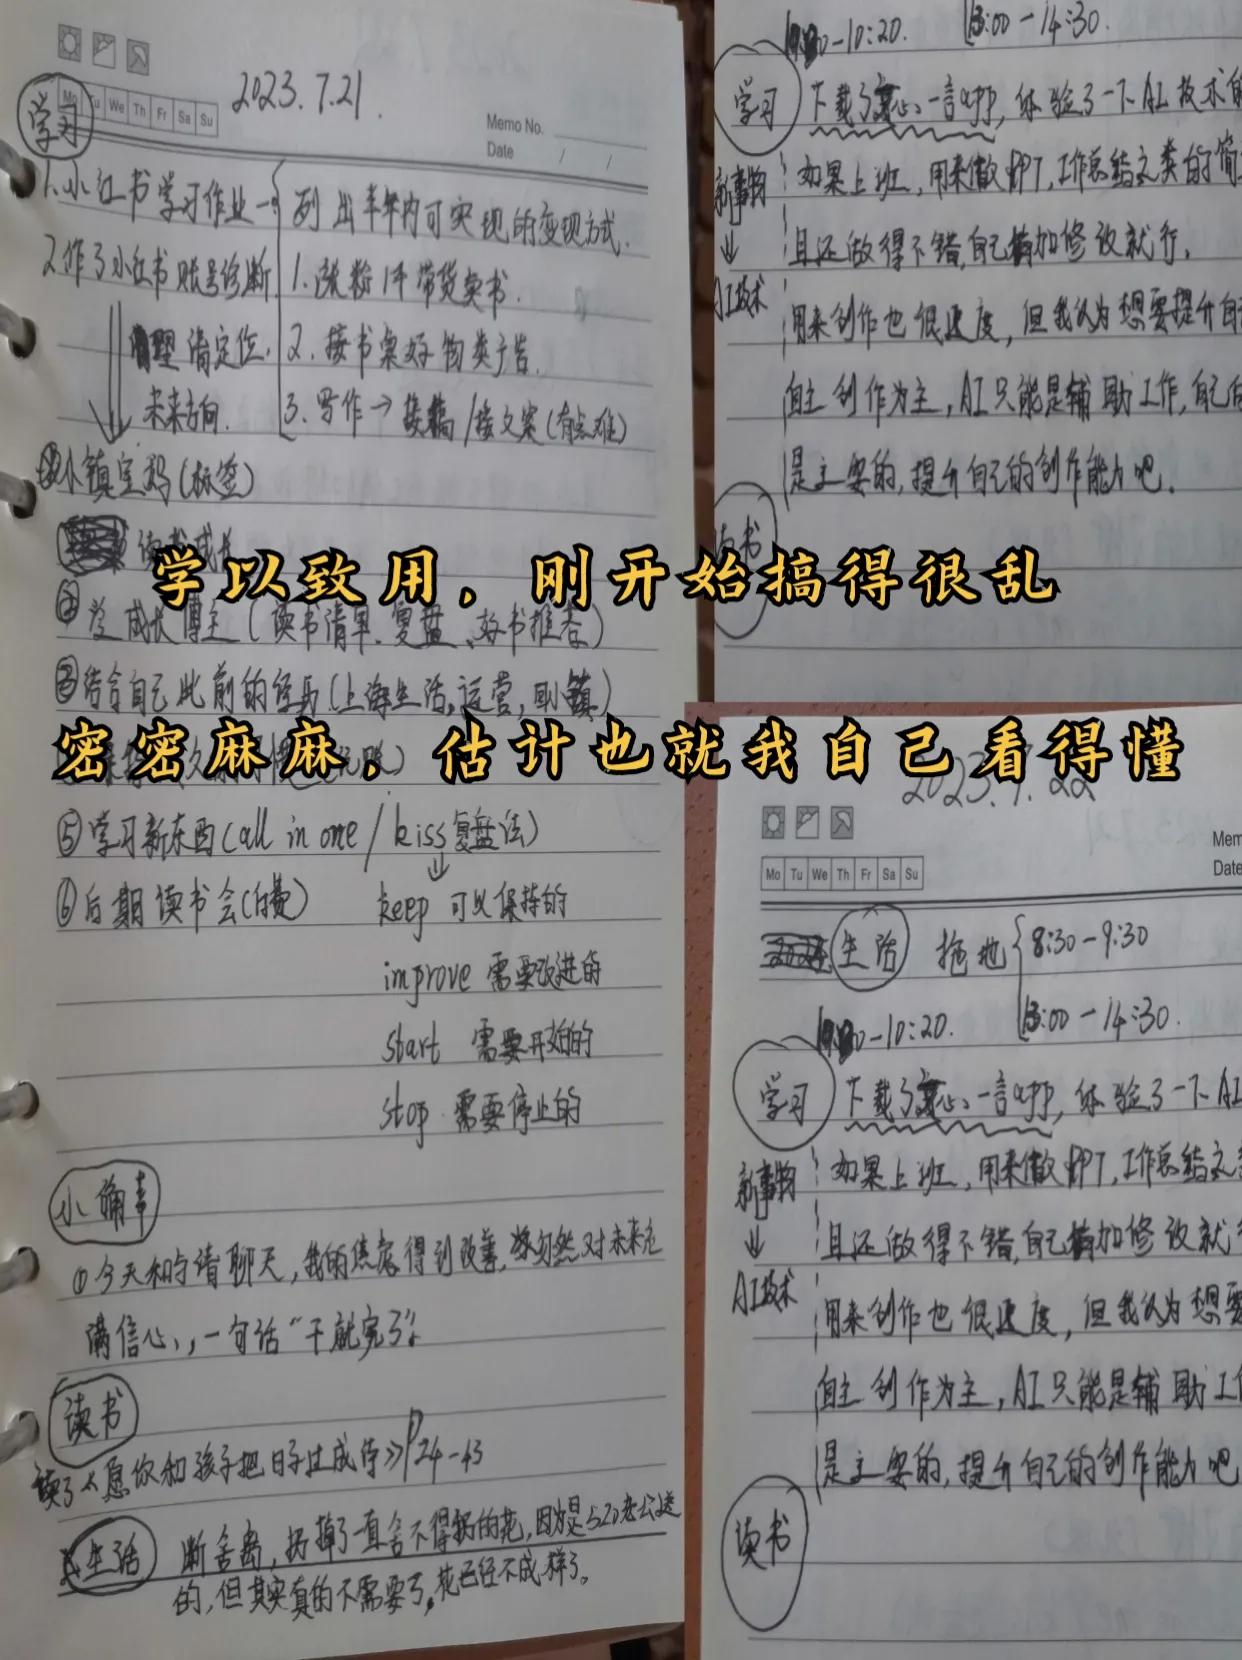 2023.7.21.
Mo Tu We Th Fr Sa Su
Memo No.
Date / /
学习
1.小红书学习作业
列出半年内可实现的变现方式.
2.作了小红书账号诊断
1.涨粉1千带货卖书.
理清定位.
2.接书桌好物类广告.
未来方向.
3.写作→接稿/接文案(有点难)
小镇宝妈(标签)
读书成长
成长博主(读书清单.复盘、好书推荐)
结合自己此前的经历(上海生活,运营,回小镇)
⑤学习新东西(all in one / kiss复盘法)
⑥后期读书会(付费)
keep 可以保持的
improve 需要改进的
start 需要开始的
stop 需要停止的
小确幸
①今天和 请聊天,我的焦虑得到改善,忽然对未来充
满信心,一句话“干就完了”.
读书
读了《愿你和孩子把日子过成诗》P24-43
生活
断舍离,扔掉了一直舍不得扔的花,因为是520老公送
的,但其实真的不需要了,花已经不成样了。
-10:20. 13:00-14:30.
学习
下载了文心一言app,体验了一下AI技术的
新事物
↓
AI技术
如果上班,用来做PPT,工作总结之类的简
且还做得不错,自己稍加修改就行.
用来创作也很速度,但我认为想要提升自
自主创作为主,AI只能是辅助工作,自己
是主要的,提升自己的创作能力吧.
读书
学以致用。刚开始搞得很乱
密密麻麻。估计也就我自己看得懂
2023.7.22
Mo Tu We Th Fr Sa Su
Mem
Date
生活
拖地
8:30-9:30
-10:20.
13:00-14:30.
学习
下载了文心一言app,体验了一下AI
新事物
↓
AI技术
如果上班,用来做PPT,工作总结之
且还做得不错,自己稍加修改就
用来创作也很速度,但我认为想要
自主创作为主,AI只能是辅助工
是主要的,提升自己的创作能力吧
读书